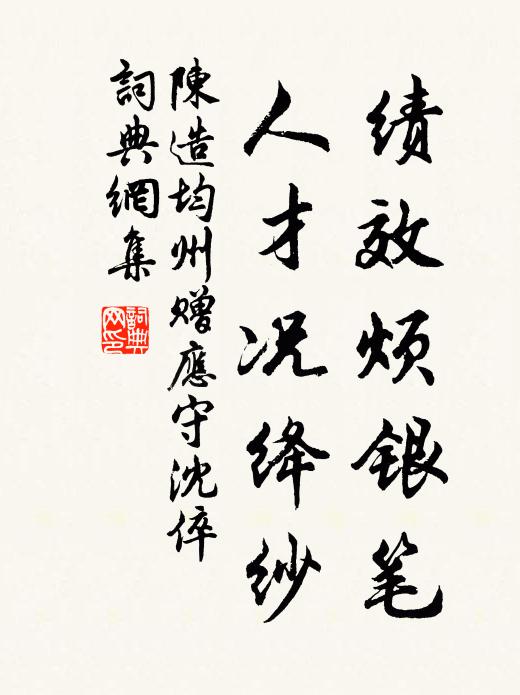 绩效烦银笔
人才况绛纱
陳造均州赠應守沈倅
詞典網集
詞典网印